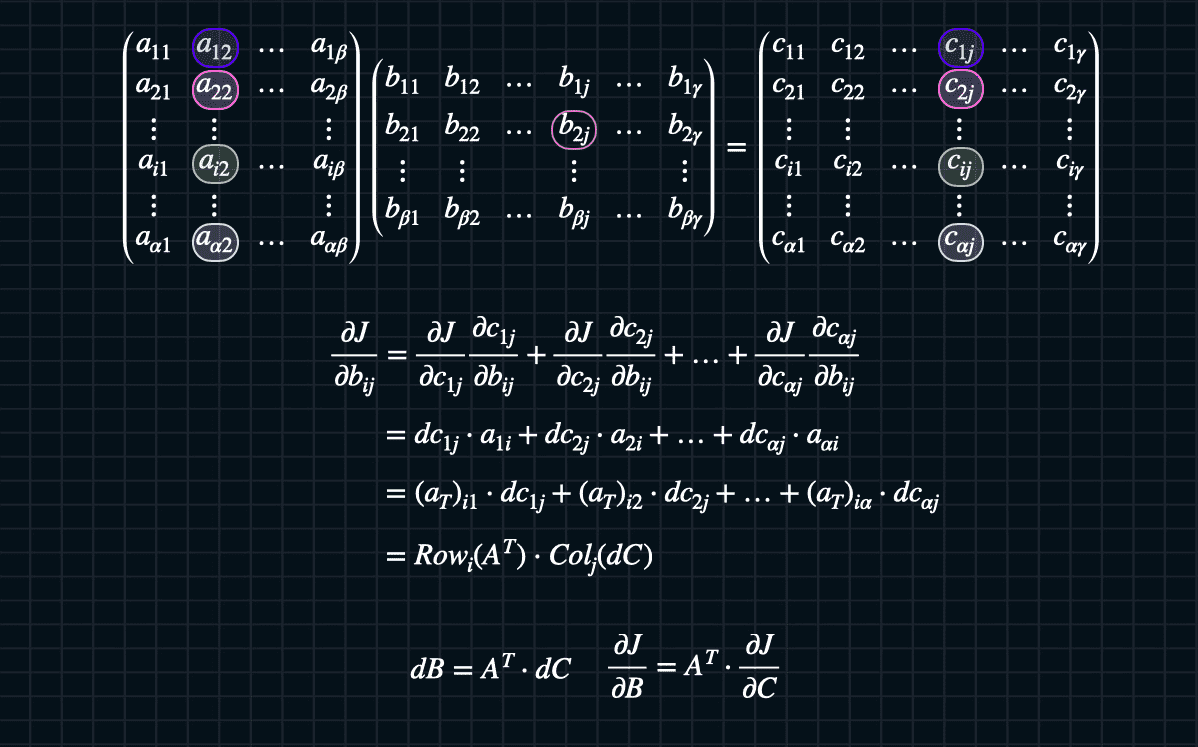 $$\begin{pmatrix} a_{11} & a_{12} & \cdots & a_{1\beta} \\ a_{21} & a_{22} & \cdots & a_{2\beta} \\ \vdots & \vdots & & \vdots \\ a_{i1} & a_{i2} & \cdots & a_{i\beta} \\ \vdots & \vdots & & \vdots \\ a_{\alpha1} & a_{\alpha2} & \cdots & a_{\alpha\beta} \end{pmatrix} \begin{pmatrix} b_{11} & b_{12} & \cdots & b_{1j} & \cdots & b_{1\gamma} \\ b_{21} & b_{22} & \cdots & b_{2j} & \cdots & b_{2\gamma} \\ \vdots & \vdots & & \vdots & & \vdots \\ b_{\beta1} & b_{\beta2} & \cdots & b_{\beta j} & \cdots & b_{\beta\gamma} \end{pmatrix} = \begin{pmatrix} c_{11} & c_{12} & \cdots & c_{1j} & \cdots & c_{1\gamma} \\ c_{21} & c_{22} & \cdots & c_{2j} & \cdots & c_{2\gamma} \\ \vdots & \vdots & & \vdots & & \vdots \\ c_{i1} & c_{i2} & \cdots & c_{ij} & \cdots & c_{i\gamma} \\ \vdots & \vdots & & \vdots & & \vdots \\ c_{\alpha1} & c_{\alpha2} & \cdots & c_{\alpha j} & \cdots & c_{\alpha\gamma} \end{pmatrix}$$
$$\frac{\partial J}{\partial b_{ij}} = \frac{\partial J}{\partial c_{1j}} \frac{\partial c_{1j}}{\partial b_{ij}} + \frac{\partial J}{\partial c_{2j}} \frac{\partial c_{2j}}{\partial b_{ij}} + \ldots + \frac{\partial J}{\partial c_{\alpha j}} \frac{\partial c_{\alpha j}}{\partial b_{ij}}$$
$$= dc_{1j} \cdot a_{1i} + dc_{2j} \cdot a_{2i} + \ldots + dc_{\alpha j} \cdot a_{\alpha i}$$
$$= (a_T)_{i1} \cdot dc_{1j} + (a_T)_{i2} \cdot dc_{2j} + \ldots + (a_T)_{i\alpha} \cdot dc_{\alpha j}$$
$$= Row_i(A^T) \cdot Col_j(dC)$$
$$dB = A^T \cdot dC \quad \frac{\partial J}{\partial B} = A^T \cdot \frac{\partial J}{\partial C}$$